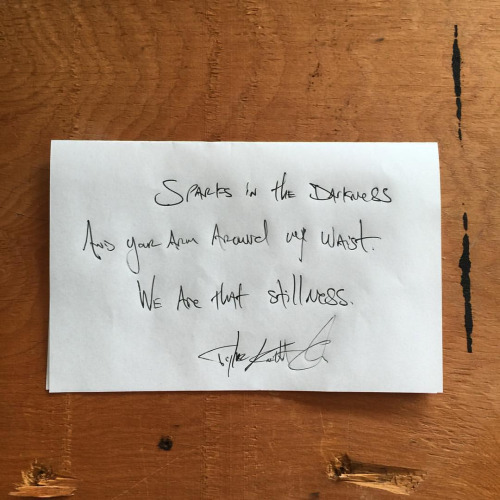 Sparks in the Darkness
And your Arm Around my Waist.
We Are that stillness.
Tyler Knott G